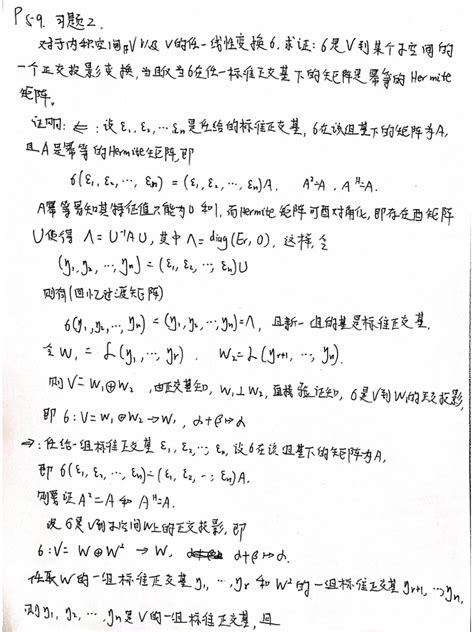 P59. 习题2.
对于内积空间 V 以及 V的任一线性变换6, 求证: 6是V到某个子空间的
一个正交投影变换, 当且仅当6在任一标准正交基下的矩阵是幂等的Hermite
矩阵.
证明: ⇐: 设 ε₁, ε₂, … εn是任给的标准正交基, 6在该组基下的矩阵为A,
且A是幂等的Hermite矩阵, 即
6(ε₁, ε₂, …, εn) = (ε₁, ε₂, …, εn)A, A²=A, Aᴴ=A.
A幂等易知其特征值只能为0和1, 而Hermite矩阵可酉对角化, 即存在酉矩阵
U使得 Λ=U⁻¹AU, 其中Λ=diag(Er, 0), 这样, 令
(y₁, y₂, …, yn) = (ε₁, ε₂, …, εn)U
则有(回忆过渡矩阵)
6(y₁, y₂, …, yn) = (y₁, y₂, …, yn)=Λ, 且新一组的基是标准正交基.
令 W₁ = L(y₁, …, yr), W₂ = L(yr+1, …, yn).
则 V=W₁⊕W₂, 由正交基知, W₁⊥W₂, 直接验证知, 6是V到W₁的正交投影,
即 6: V=W₁⊕W₂→W₁, α+β↦α.
⇒: 任给一组标准正交基 ε₁, ε₂, …, εn, 设6在该组基下的矩阵为A,
即 6(ε₁, ε₂, …, εn)=(ε₁, ε₂, …, εn)A.
则要证 A²=A 和 Aᴴ=A.
设6是V到子空间W上的正交投影, 即
6: V=W⊕W⊥ → W, α+β↦α.
任取W的一组标准正交基 y₁, …, yr 和 W⊥的一组标准正交基 yr+1, …, yn,
则y₁, y₂, …, yn是V的一组标准正交基, 且